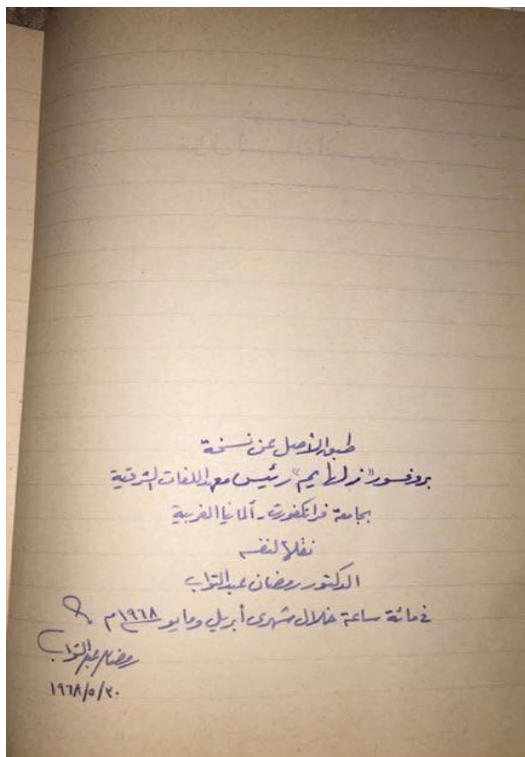 طبق الأصل عن نسخة
بروفسور "زلهايم" رئيس معهد اللغات الشرقية
بجامعة فرانكفورت - ألمانيا الغربية
نقلها لنفسه
الدكتور رمضان عبد التواب
في مائة ساعة خلال شهرى أبريل ومايو ١٩٦٨م
رمضان عبد التواب
١٩٦٨/٥/٣٠